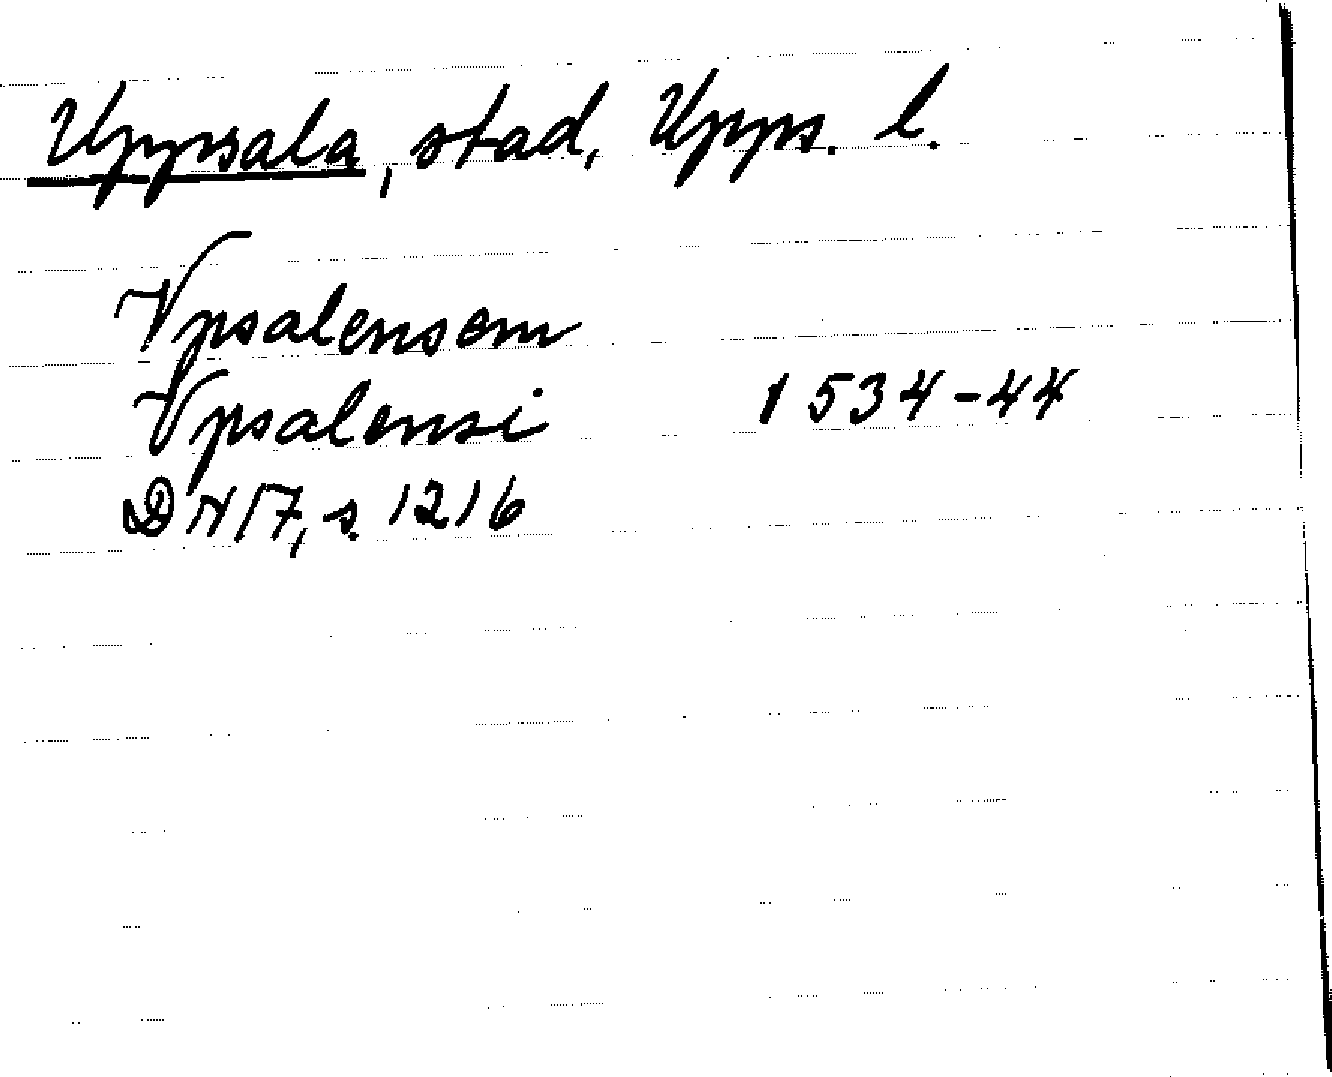 Uppsala, stad, Upps. l.
Vpsalensem
Vpsalensi 1534-44
DN 17, s. 1216